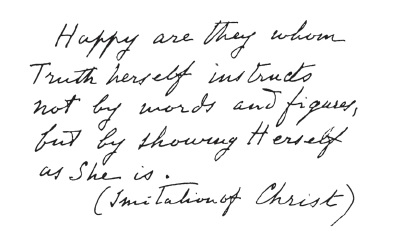 Happy are they whom
Truth herself instructs
not by words and figures,
but by showing Herself
as She is.
(Imitation of Christ)